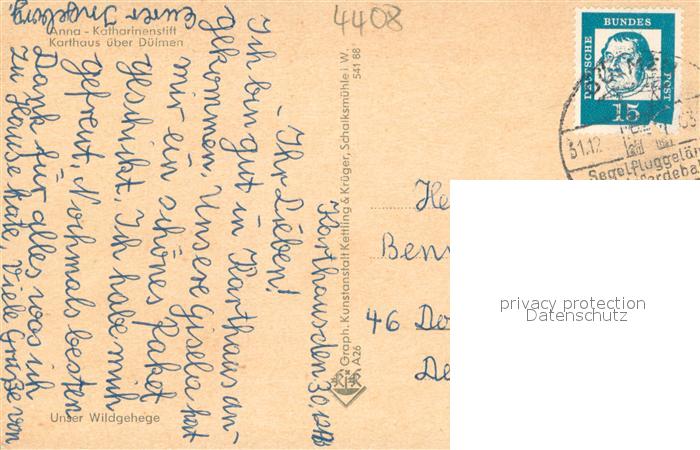 4408
Anna - Katharinenstift
Karthaus über Dülmen
Karthaus, den 30.12.
Ihr Lieben!
Ich bin gut in Karthaus an-
gekommen. Unsere Gisela hat
mir ein schönes Paket
geschickt. Ich habe mich
gefreut. Nochmals besten
Dank für alles was ich
zu Hause hatte. Viele Grüße von
Eurer Ingeborg.
Unser Wildgehege
Graph. Kunstanstalt Kettling & Krüger, Schalksmühle i. W.
A26
541 88
DEUTSCHE BUNDES POST
15
31.12
Segelfluggelän
He
Benn
46 Do
De
privacy protection
Datenschutz